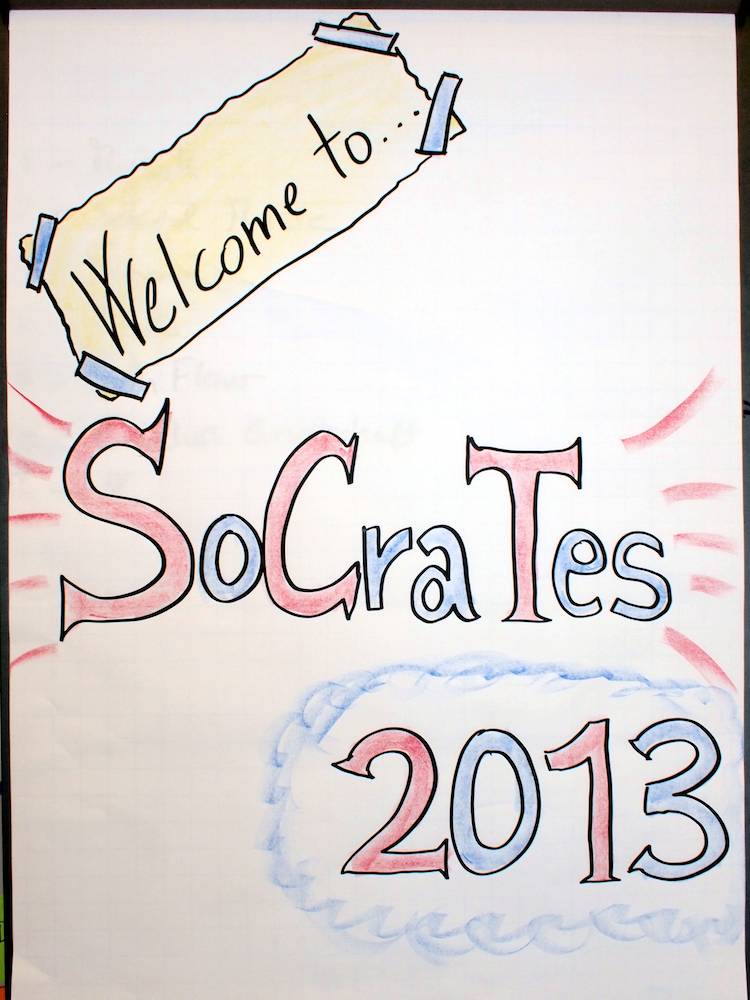 Welcome to...
SoCraTes
2013